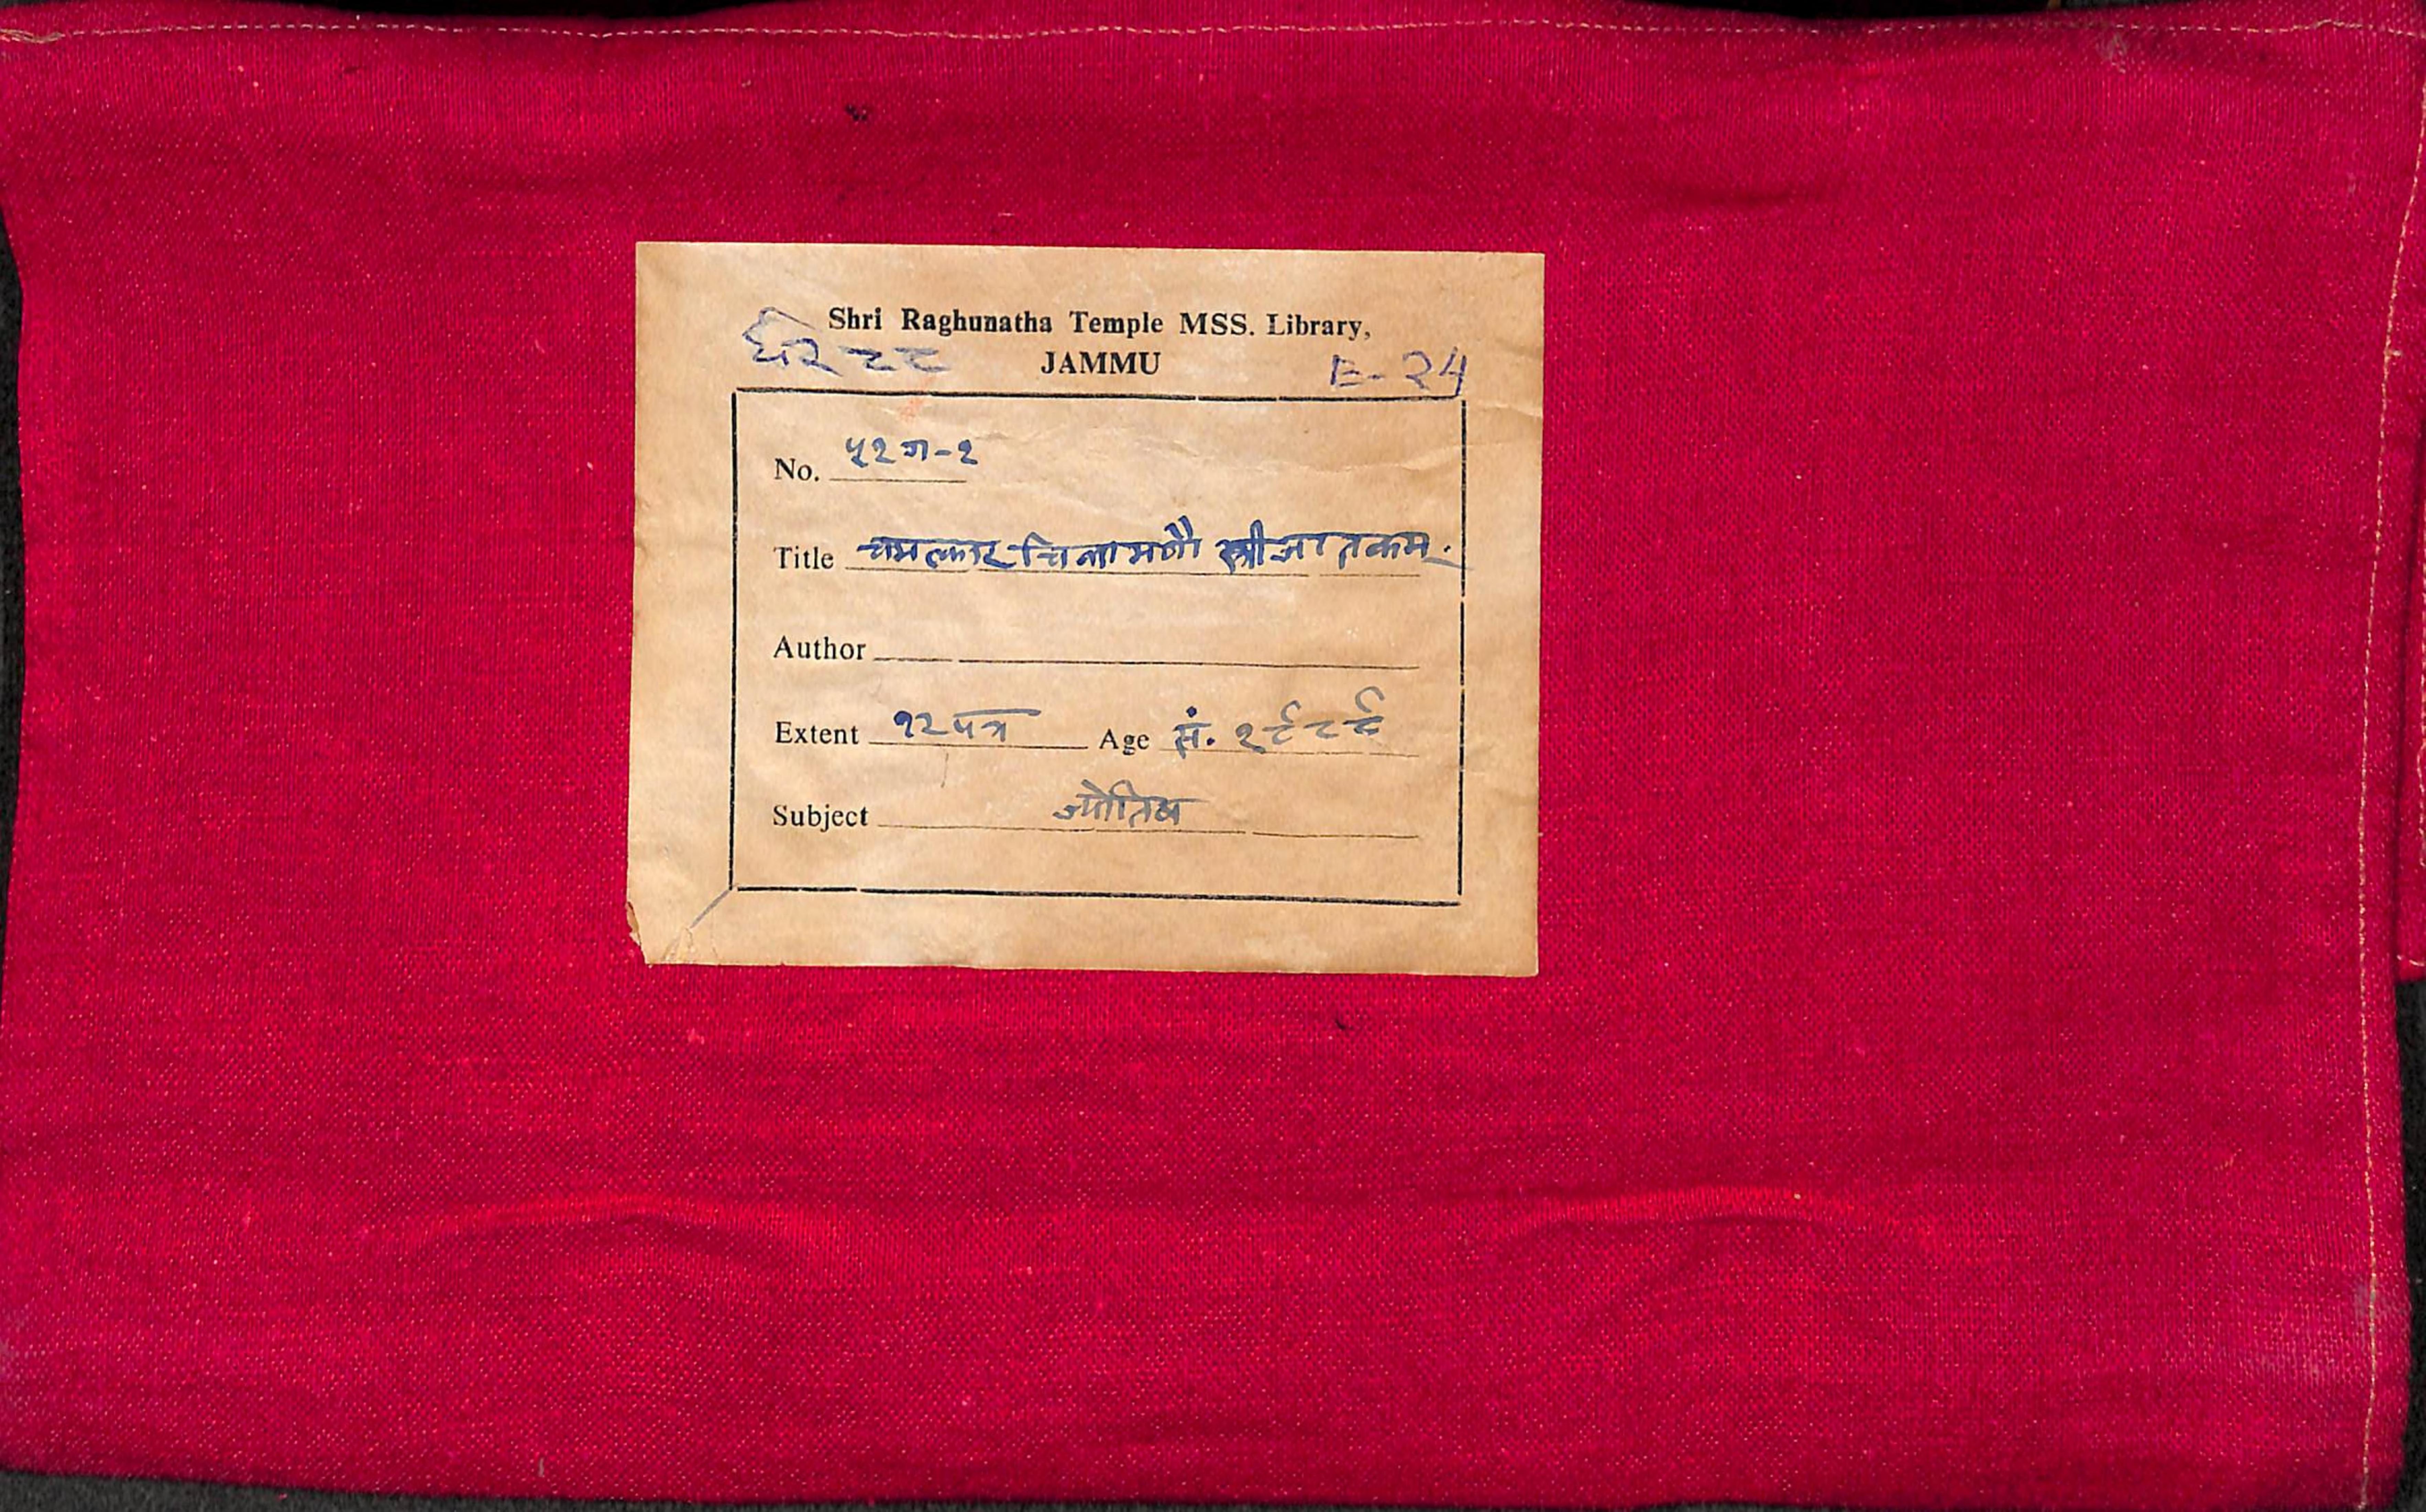 Shri Raghunatha Temple MSS. Library,
JAMMU
E-२५
No. ५२ग-२
Title चमत्कारचिन्तामणौ स्त्रीजातकम्.
Author
Extent १२पत्र Age सं. १९८९
Subject ज्योतिष